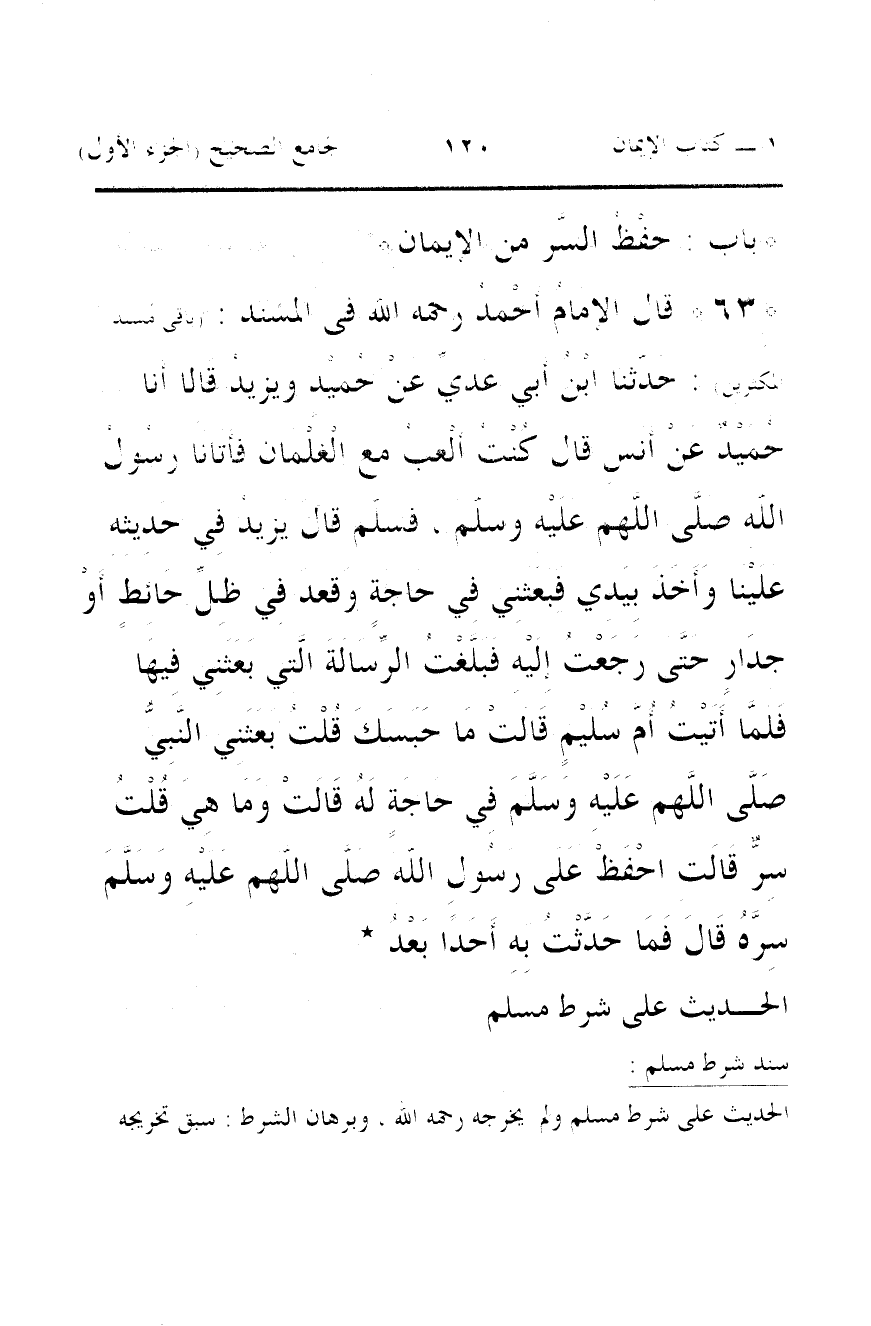 ١ ــ كتاب الإيمان ١٢٠ لجامع الصحيح (الجزء الأول)
* باب : حفْظُ السِّر من الإيمان *
* ٦٣ * قال الإمامُ أحْمدُ رحمه الله فى المسْند : (باقي مسند
المكثرين) : حَدَّثنا ابْنُ أبي عديٍّ عَنْ حُميْد ويزيدُ قالا أنا
حُميْدٌ عَنْ أنس قال كُنْتُ ألْعبُ مع الْغلْمان فأتانا رسُولُ
اللَّه صَلَّى اللَّهم عَلَيْه وسلَّم . فسلَّم قالَ يزيدُ في حديثه
عَلَيْنا وَأَخَذَ بيَدي فَبَعَثني في حاجَةٍ وقعدَ في ظلِّ حَائطٍ أَوْ
جدَارٍ حَتَّى رَجَعْتُ إلَيْه فَبَلَّغْتُ الرِّسالَةَ الَّتي بَعَثَني فيهَا
فَلَمَّا أَتَيْتُ أُمَّ سُلَيْمٍ قَالَتْ مَا حَبَسَكَ قُلْتُ بَعَثَني النَّبيُّ
صَلَّى اللَّهم عَلَيْه وَسَلَّمَ في حَاجَةٍ لَهُ قَالَتْ وَمَا هيَ قُلْتُ
سرٌّ قَالَت احْفَظْ عَلَى رَسُولِ اللَّه صَلَّى اللَّهم عَلَيْه وَسَلَّمَ
سرَّهُ قَالَ فَمَا حَدَّثْتُ به أَحَدًا بَعْدُ *
الحـــديث على شرط مسلم
سند شرط مسلم :
الحديث على شرط مسلم ولم يخرجه رحمه الله . وبرهان الشرط : سبق تخريجه